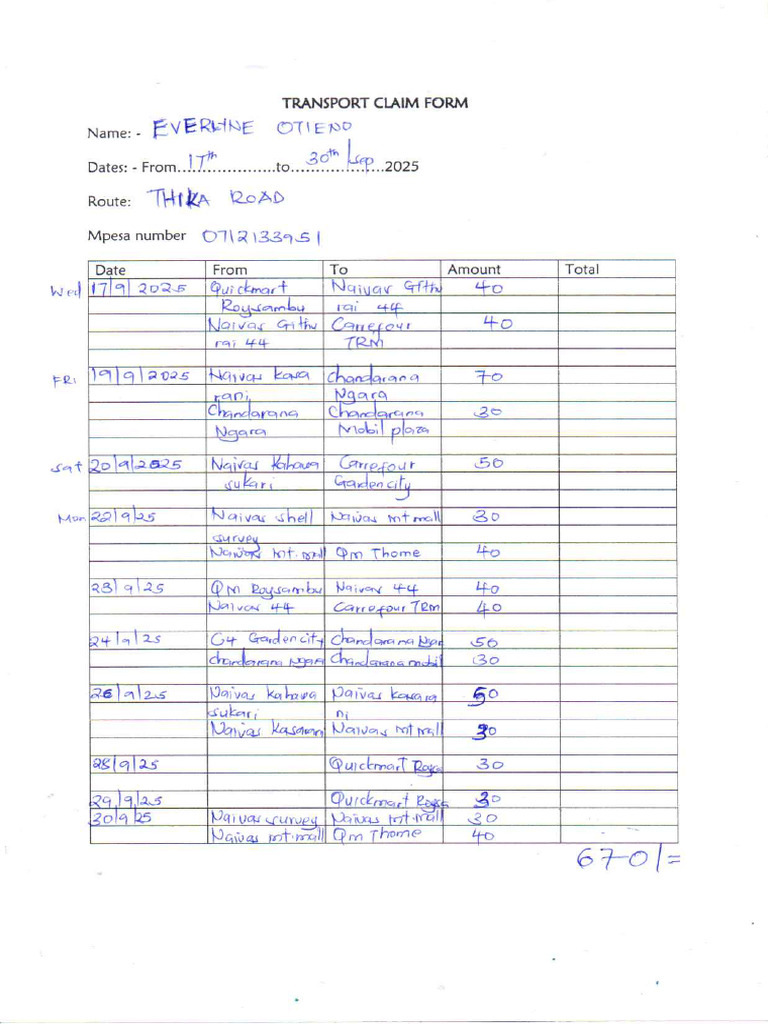 TRANSPORT CLAIM FORM
Name: - EVERLINE OTIENO
Dates: - From....17th....to....30th/sep....2025
Route: THIKA ROAD
Mpesa number 0712133951
Date From To Amount Total
Wed 17/9/2025 Quickmart Naivas Githu 40
Roysambu rai 44
Naivas Githu Carrefour 40
rai 44 TRM
FRI 19/9/2025 Naivas kasa Chandarana 70
rani Ngara
Chandarana Chandarana 30
Ngara Mobil plaza
Sat 20/9/2025 Naivas Kahawa Carrefour 50
sukari Gardencity
Mon 22/9/25 Naivas shell Naivas mt mall 30
survey
Naivas mt.mall Qm Thome 40
23/9/25 QM Roysambu Naivas 44 40
Naivas 44 Carrefour TRM 40
24/9/25 C4 Gardencity Chandarana Ngar 50
chandarana Ngara Chandarana mobil 30
26/9/25 Naivas kahawa Naivas kasara 50
sukari ni
Naivas Kasarani Naivas mt mall 30
28/9/25 Quickmart Roysa 30
29/9/25 Quickmart Roysa 30
30/9/25 Naivas survey Naivas mt.mall 30
Naivas mt.mall Qm Thome 40
670/=